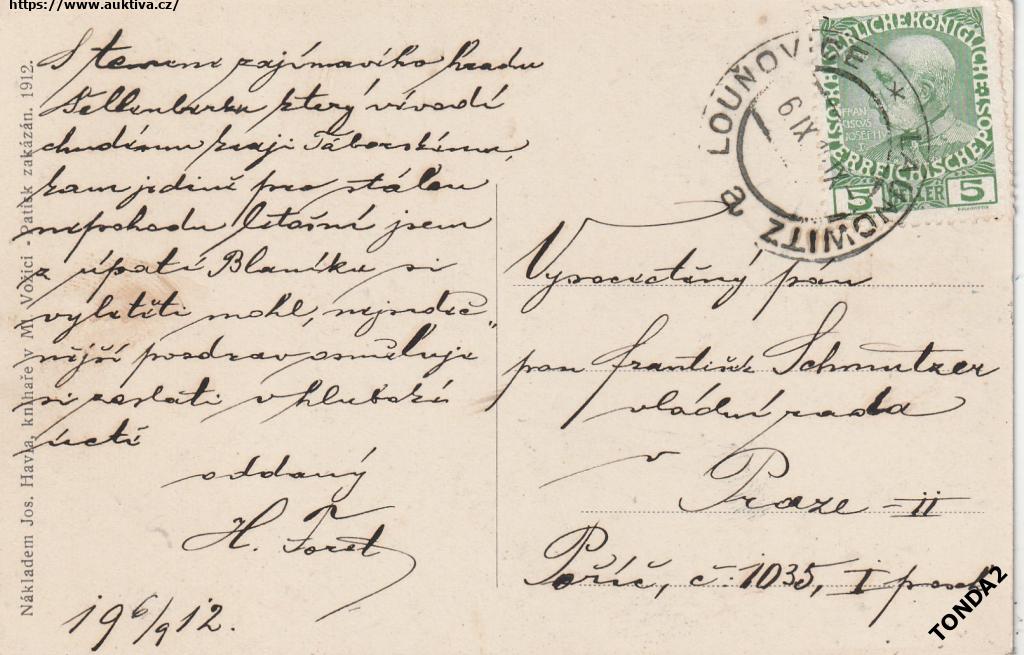 https://www.auktiva.cz/
Nákladem Jos. Havla, knihaře v Ml. Vožici - Patisk zakázán. 1912.
S temene zajímavého hradu
Šellenberku který vévodí
chudému kraji Táborskému,
kam jedině pro stálou
nepohodu letošní jsem
z úpatí Blaníku si
vyletěti mohl, nejsrdeč
nější pozdrav osměluji
si zaslati v hluboké
úctě
oddaný
H. Foret
19 6/9 12.
LOUŇOVICE
6 IX
LAUNOWITZ
a
KAISERLICHE KÖNIGLICHE
ÖSTERREICHISCHE POST
FRANCISCUS JOSEPHUS I
5 HELLER 5
Vysocectěný pán
pan František Schmutzer
vládní rada
v Praze - II
Poříč, č. 1035, I posch
TONDA2